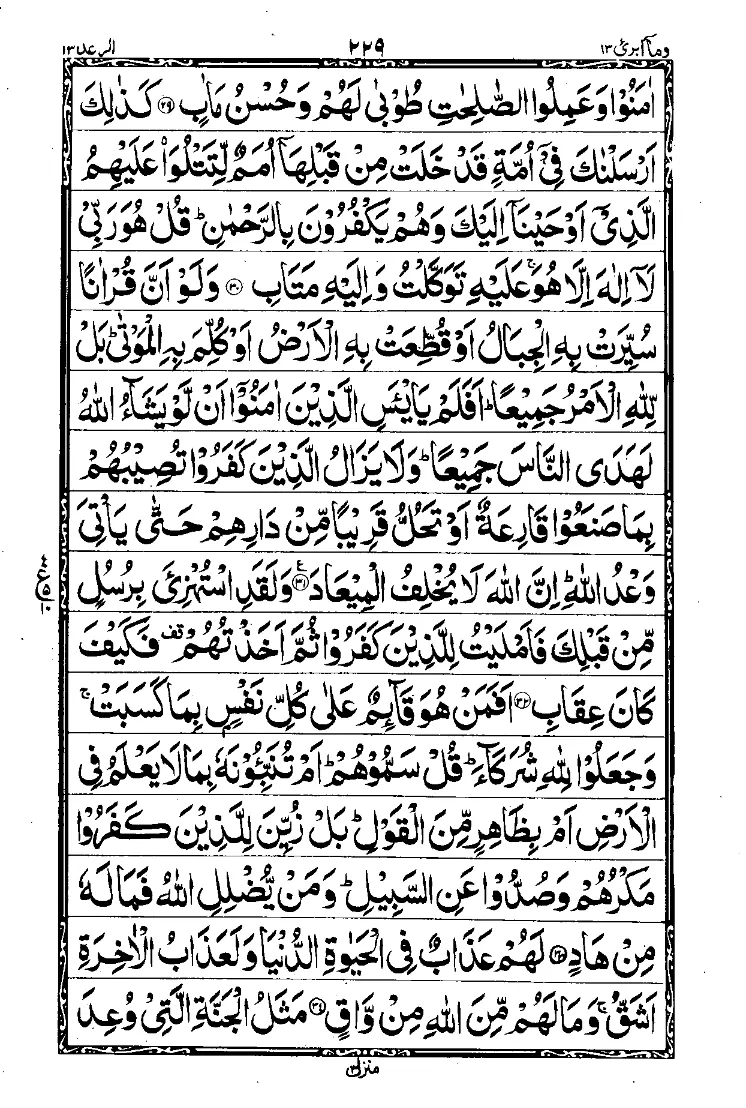 وماۤ ابرئ ١٣ ٢٢٩ الرعد ١٣
اٰمَنُوْا وَعَمِلُوا الصّٰلِحٰتِ طُوْبٰى لَهُمْ وَحُسْنُ مَاٰبٍ ﴿٢٩﴾ كَذٰلِكَ
اَرْسَلْنٰكَ فِيْۤ اُمَّةٍ قَدْ خَلَتْ مِنْ قَبْلِهَاۤ اُمَمٌ لِّتَتْلُوَا۟ عَلَيْهِمُ
الَّذِيْۤ اَوْحَيْنَاۤ اِلَيْكَ وَهُمْ يَكْفُرُوْنَ بِالرَّحْمٰنِ ؕ قُلْ هُوَ رَبِّيْ
لَاۤ اِلٰهَ اِلَّا هُوَ ۚ عَلَيْهِ تَوَكَّلْتُ وَاِلَيْهِ مَتَابِ ﴿٣٠﴾ وَلَوْ اَنَّ قُرْاٰنًا
سُيِّرَتْ بِهِ الْجِبَالُ اَوْ قُطِّعَتْ بِهِ الْاَرْضُ اَوْ كُلِّمَ بِهِ الْمَوْتٰى ؕ بَلْ
لِّلّٰهِ الْاَمْرُ جَمِيْعًا ؕ اَفَلَمْ يَايْـَٔسِ الَّذِيْنَ اٰمَنُوْۤا اَنْ لَّوْ يَشَآءُ اللّٰهُ
لَهَدَى النَّاسَ جَمِيْعًا ؕ وَلَا يَزَالُ الَّذِيْنَ كَفَرُوْا تُصِيْبُهُمْ
بِمَا صَنَعُوْا قَارِعَةٌ اَوْ تَحُلُّ قَرِيْبًا مِّنْ دَارِهِمْ حَتّٰى يَاْتِيَ
وَعْدُ اللّٰهِ ؕ اِنَّ اللّٰهَ لَا يُخْلِفُ الْمِيْعَادَ ﴿٣١﴾ وَلَقَدِ اسْتُهْزِئَ بِرُسُلٍ
مِّنْ قَبْلِكَ فَاَمْلَيْتُ لِلَّذِيْنَ كَفَرُوْا ثُمَّ اَخَذْتُهُمْ قف فَكَيْفَ
كَانَ عِقَابِ ﴿٣٢﴾ اَفَمَنْ هُوَ قَآئِمٌ عَلٰى كُلِّ نَفْسٍۭ بِمَا كَسَبَتْ ۚ
وَجَعَلُوْا لِلّٰهِ شُرَكَآءَ ؕ قُلْ سَمُّوْهُمْ ؕ اَمْ تُنَبِّـُٔوْنَهٗ بِمَا لَا يَعْلَمُ فِي
الْاَرْضِ اَمْ بِظَاهِرٍ مِّنَ الْقَوْلِ ؕ بَلْ زُيِّنَ لِلَّذِيْنَ كَفَرُوْا
مَكْرُهُمْ وَصُدُّوْا عَنِ السَّبِيْلِ ؕ وَمَنْ يُّضْلِلِ اللّٰهُ فَمَا لَهٗ
مِنْ هَادٍ ﴿٣٣﴾ لَهُمْ عَذَابٌ فِي الْحَيٰوةِ الدُّنْيَا وَلَعَذَابُ الْاٰخِرَةِ
اَشَقُّ ۚ وَمَا لَهُمْ مِّنَ اللّٰهِ مِنْ وَّاقٍ ﴿٣٤﴾ مَثَلُ الْجَنَّةِ الَّتِيْ وُعِدَ
منزل ٣